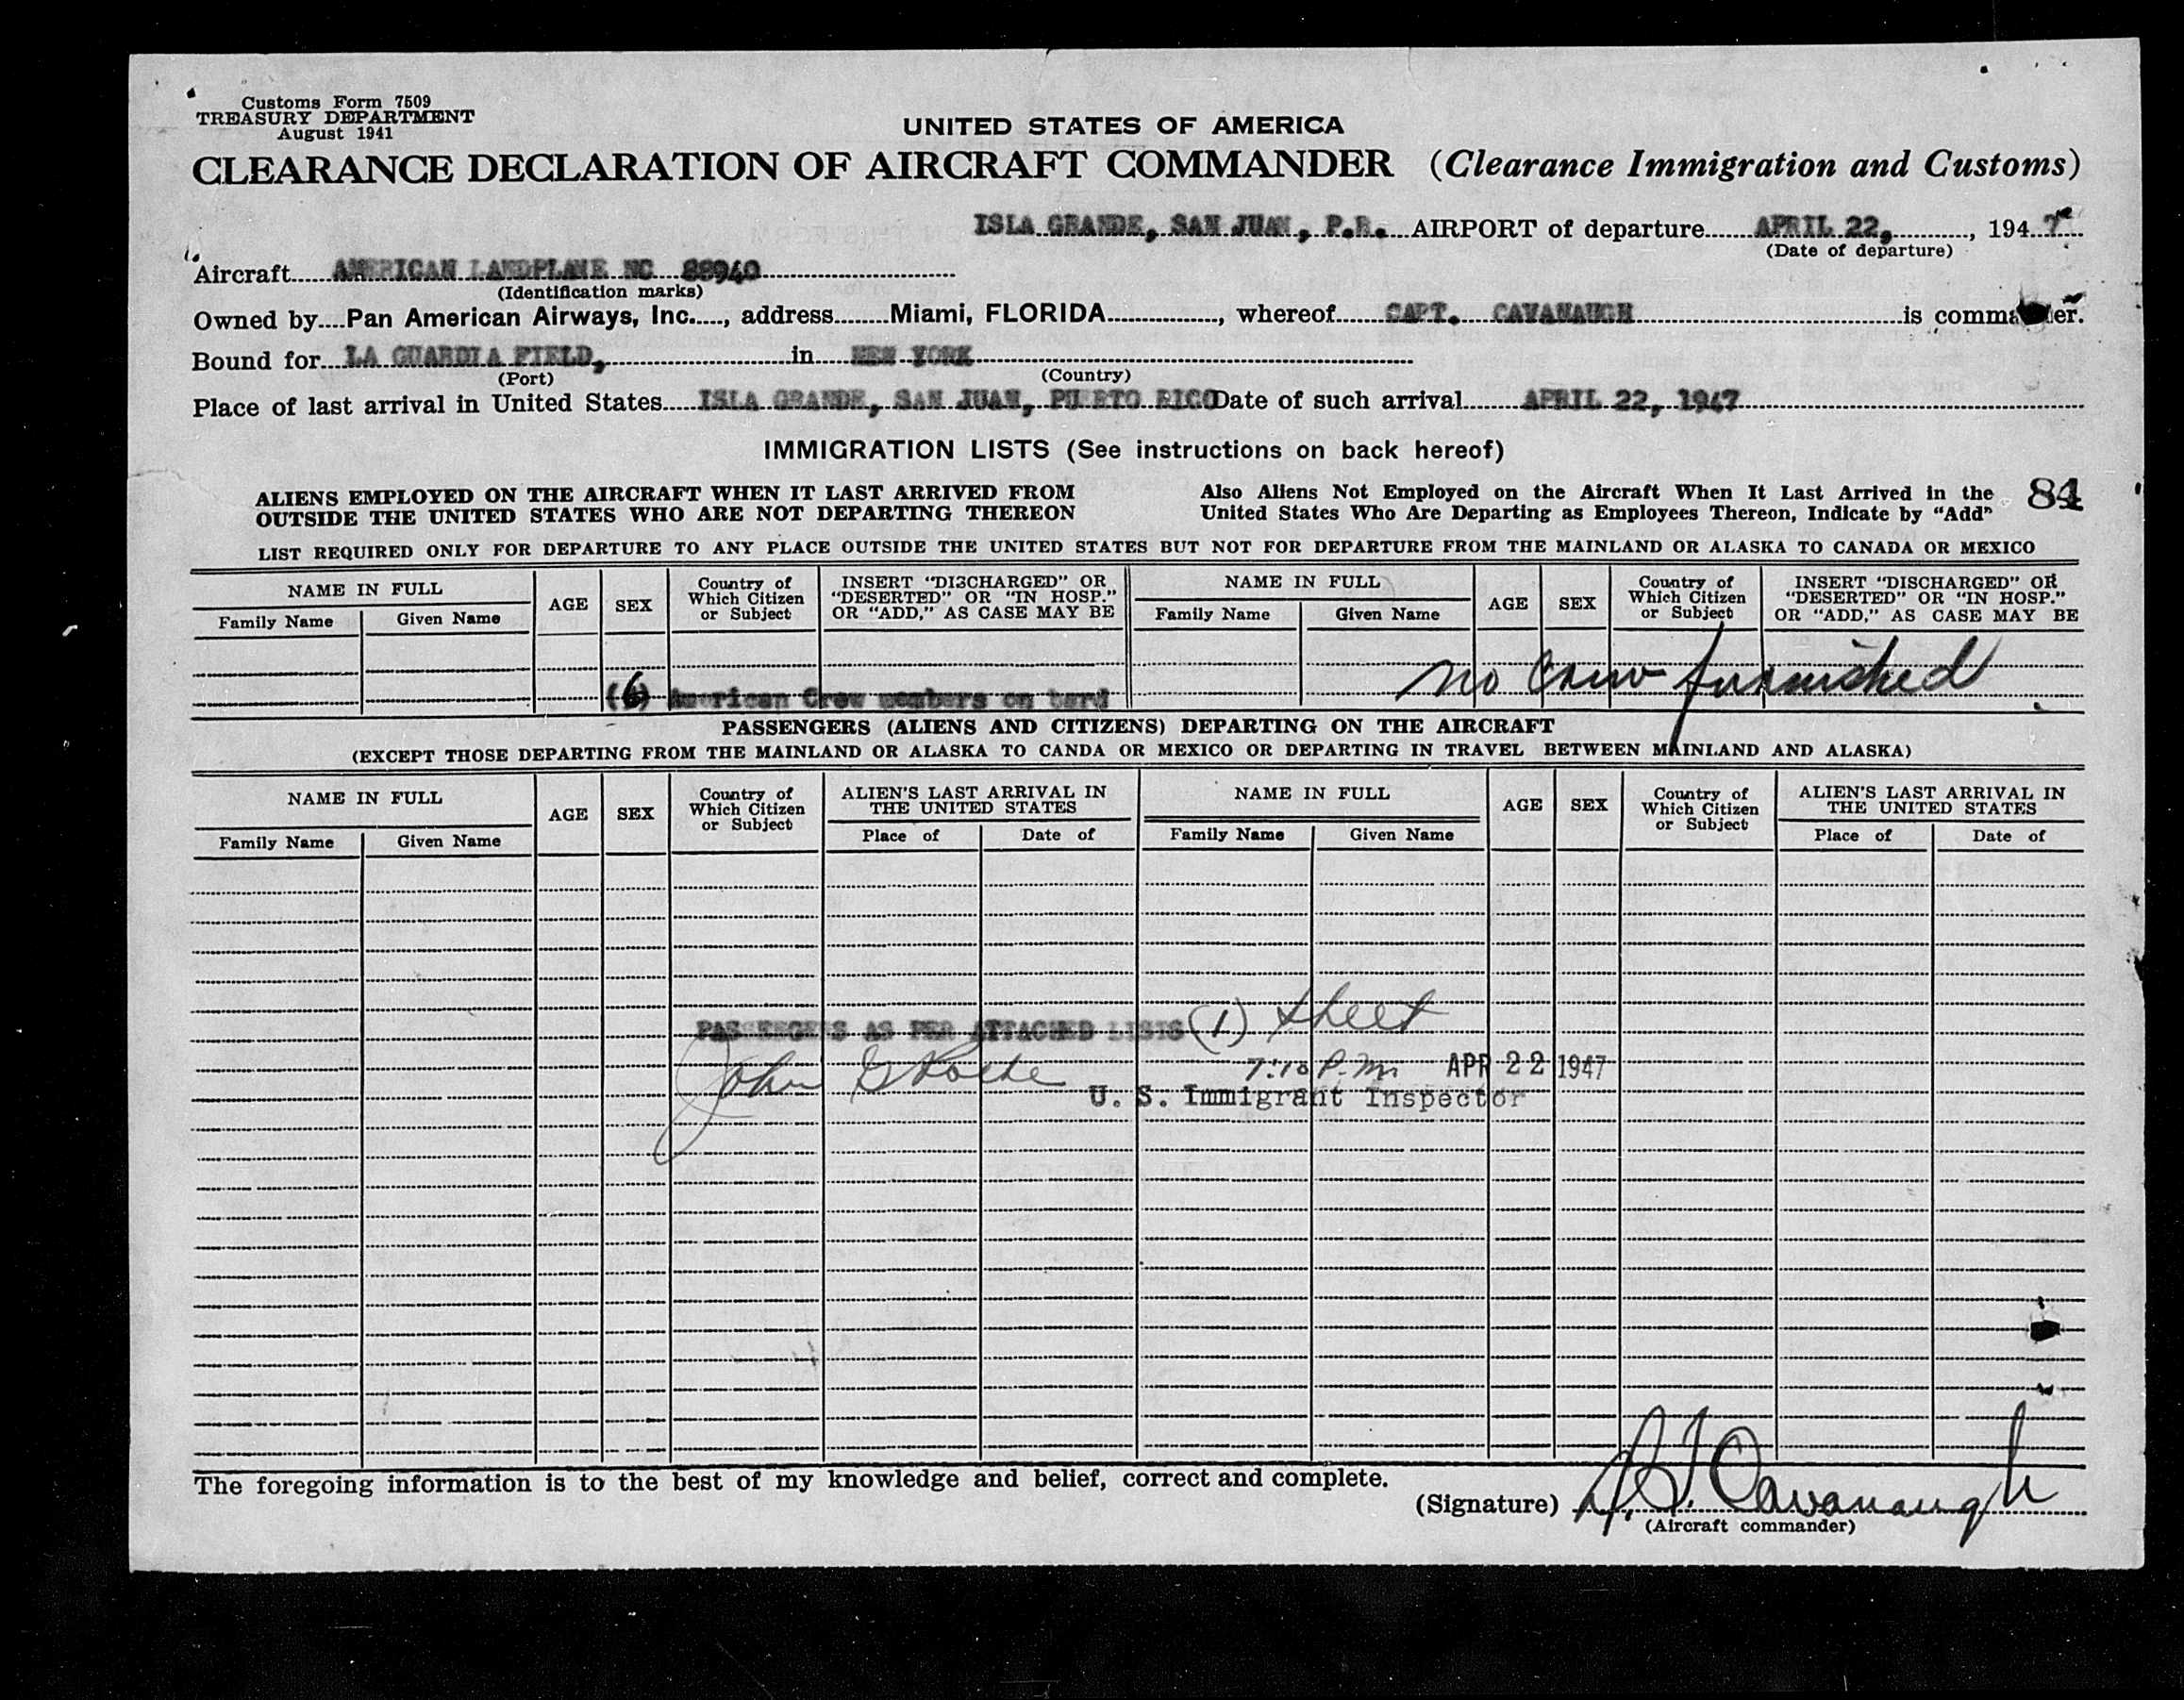 Customs Form 7509
TREASURY DEPARTMENT
August 1941
UNITED STATES OF AMERICA
CLEARANCE DECLARATION OF AIRCRAFT COMMANDER (Clearance Immigration and Customs)
ISLA GRANDE, SAN JUAN, P.R. AIRPORT of departure APRIL 22, , 194 7
(Date of departure)
Aircraft AMERICAN LANDPLANE NC 88940
(Identification marks)
Owned by Pan American Airways, Inc. , address Miami, FLORIDA , whereof CAPT. CAVANAUGH is commander.
Bound for LA GUARDIA FIELD, in NEW YORK
(Port) (Country)
Place of last arrival in United States ISLA GRANDE, SAN JUAN, PUERTO RICO Date of such arrival APRIL 22, 1947
IMMIGRATION LISTS (See instructions on back hereof)
ALIENS EMPLOYED ON THE AIRCRAFT WHEN IT LAST ARRIVED FROM
OUTSIDE THE UNITED STATES WHO ARE NOT DEPARTING THEREON
Also Aliens Not Employed on the Aircraft When It Last Arrived in the
United States Who Are Departing as Employees Thereon, Indicate by "Add"
84
LIST REQUIRED ONLY FOR DEPARTURE TO ANY PLACE OUTSIDE THE UNITED STATES BUT NOT FOR DEPARTURE FROM THE MAINLAND OR ALASKA TO CANADA OR MEXICO
NAME IN FULL
Family Name Given Name
AGE
SEX
Country of
Which Citizen
or Subject
INSERT "DISCHARGED" OR
"DESERTED" OR "IN HOSP."
OR "ADD," AS CASE MAY BE
NAME IN FULL
Family Name Given Name
AGE
SEX
Country of
Which Citizen
or Subject
INSERT "DISCHARGED" OR
"DESERTED" OR "IN HOSP."
OR "ADD," AS CASE MAY BE
(6) American Crew members on bard
No Crew furnished
PASSENGERS (ALIENS AND CITIZENS) DEPARTING ON THE AIRCRAFT
(EXCEPT THOSE DEPARTING FROM THE MAINLAND OR ALASKA TO CANDA OR MEXICO OR DEPARTING IN TRAVEL BETWEEN MAINLAND AND ALASKA)
NAME IN FULL
Family Name Given Name
AGE
SEX
Country of
Which Citizen
or Subject
ALIEN'S LAST ARRIVAL IN
THE UNITED STATES
Place of Date of
NAME IN FULL
Family Name Given Name
AGE
SEX
Country of
Which Citizen
or Subject
ALIEN'S LAST ARRIVAL IN
THE UNITED STATES
Place of Date of
PASSENGERS AS PER ATTACHED LISTS (1) sheet
John 7:10 P.M. APR 22 1947
U. S. Immigrant Inspector
The foregoing information is to the best of my knowledge and belief, correct and complete.
(Signature) Cavanaugh
(Aircraft commander)